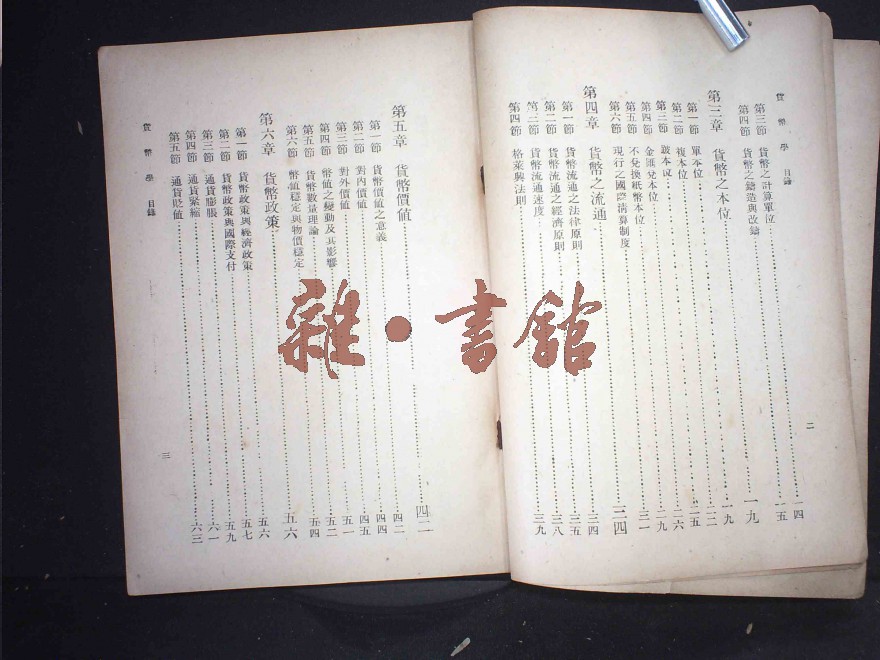 貨幣學 目錄
第三節 貨幣之計算單位 一四
第四節 貨幣之鑄造與改鑄 一五
第三章 貨幣之本位 一九
第一節 單本位 一九
第二節 複本位 二二
第三節 跛本位 二五
第四節 金匯兌本位 二六
第五節 不兌換紙幣本位 二九
第六節 現行之國際清算制度 三一
第四章 貨幣之流通 三四
第一節 貨幣流通之法律原則 三四
第二節 貨幣流通之經濟原則 三五
第三節 貨幣流通速度 三八
第四節 格萊興法則 三九
二
第五章 貨幣價値 四二
第一節 貨幣價値之意義 四二
第二節 對內價値 四四
第三節 對外價値 四五
第四節 幣値之變動及其影響 五一
第五節 貨幣數量理論 五二
第六節 幣値穩定與物價穩定 五四
第六章 貨幣政策 五六
第一節 貨幣政策與經濟政策 五六
第二節 貨幣政策與國際支付 五七
第三節 通貨膨脹 五九
第四節 通貨緊縮 六一
第五節 通貨貶値 六三
貨幣學 目錄
三
雜·書館